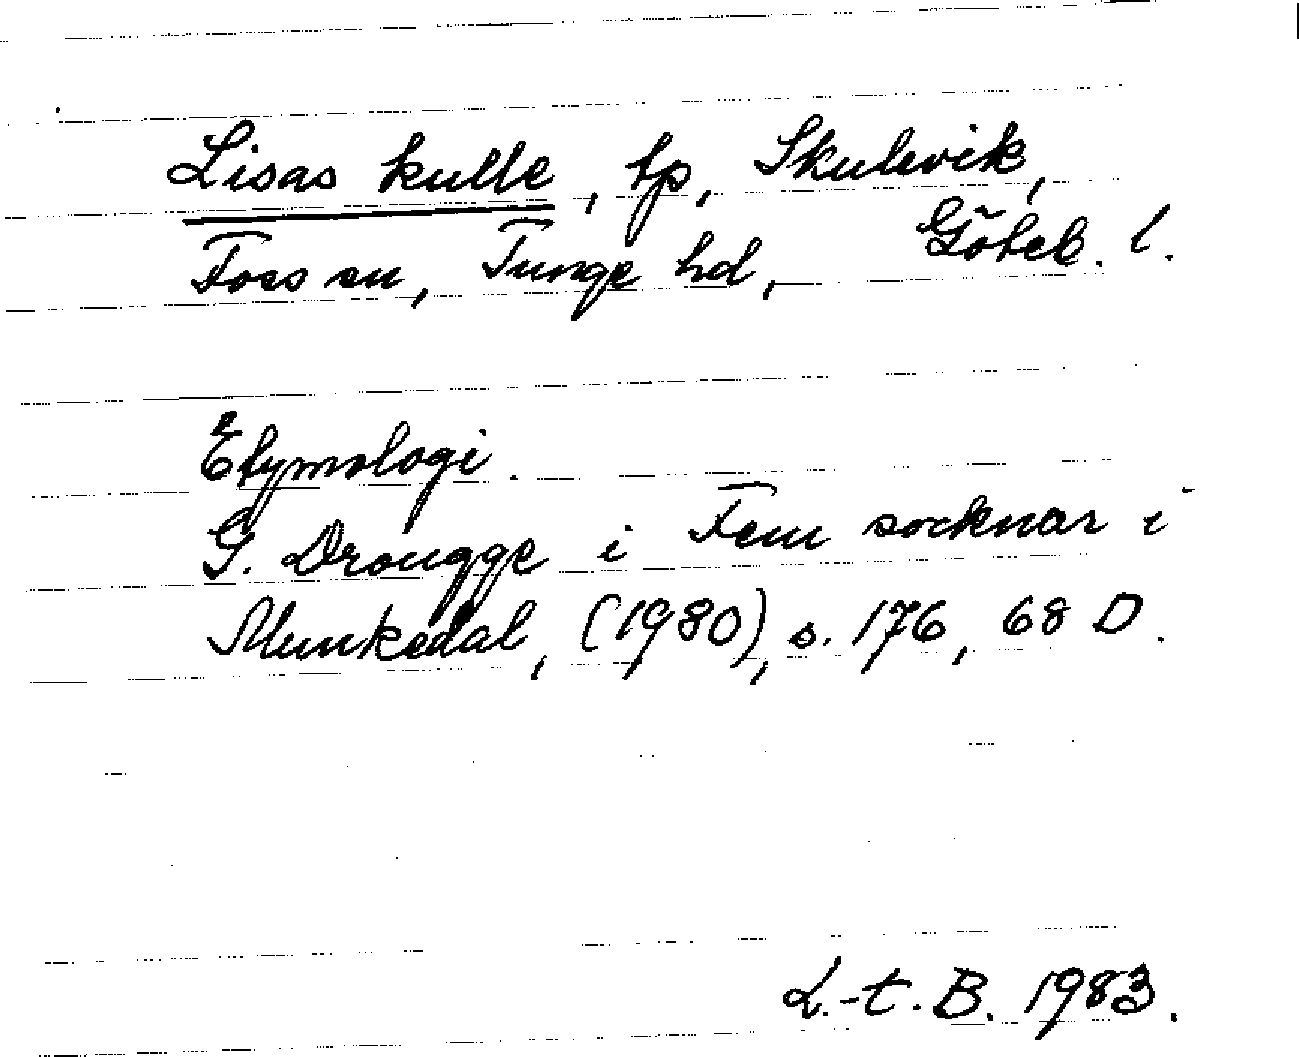 Lisas kulle, tp, Skulevik,
Foss sn, Tunge hd, Göteb. l.
Etymologi.
G. Drougge i Fem socknar i
Munkedal, (1980), s. 176, 68 D.
L.-t. B. 1983.